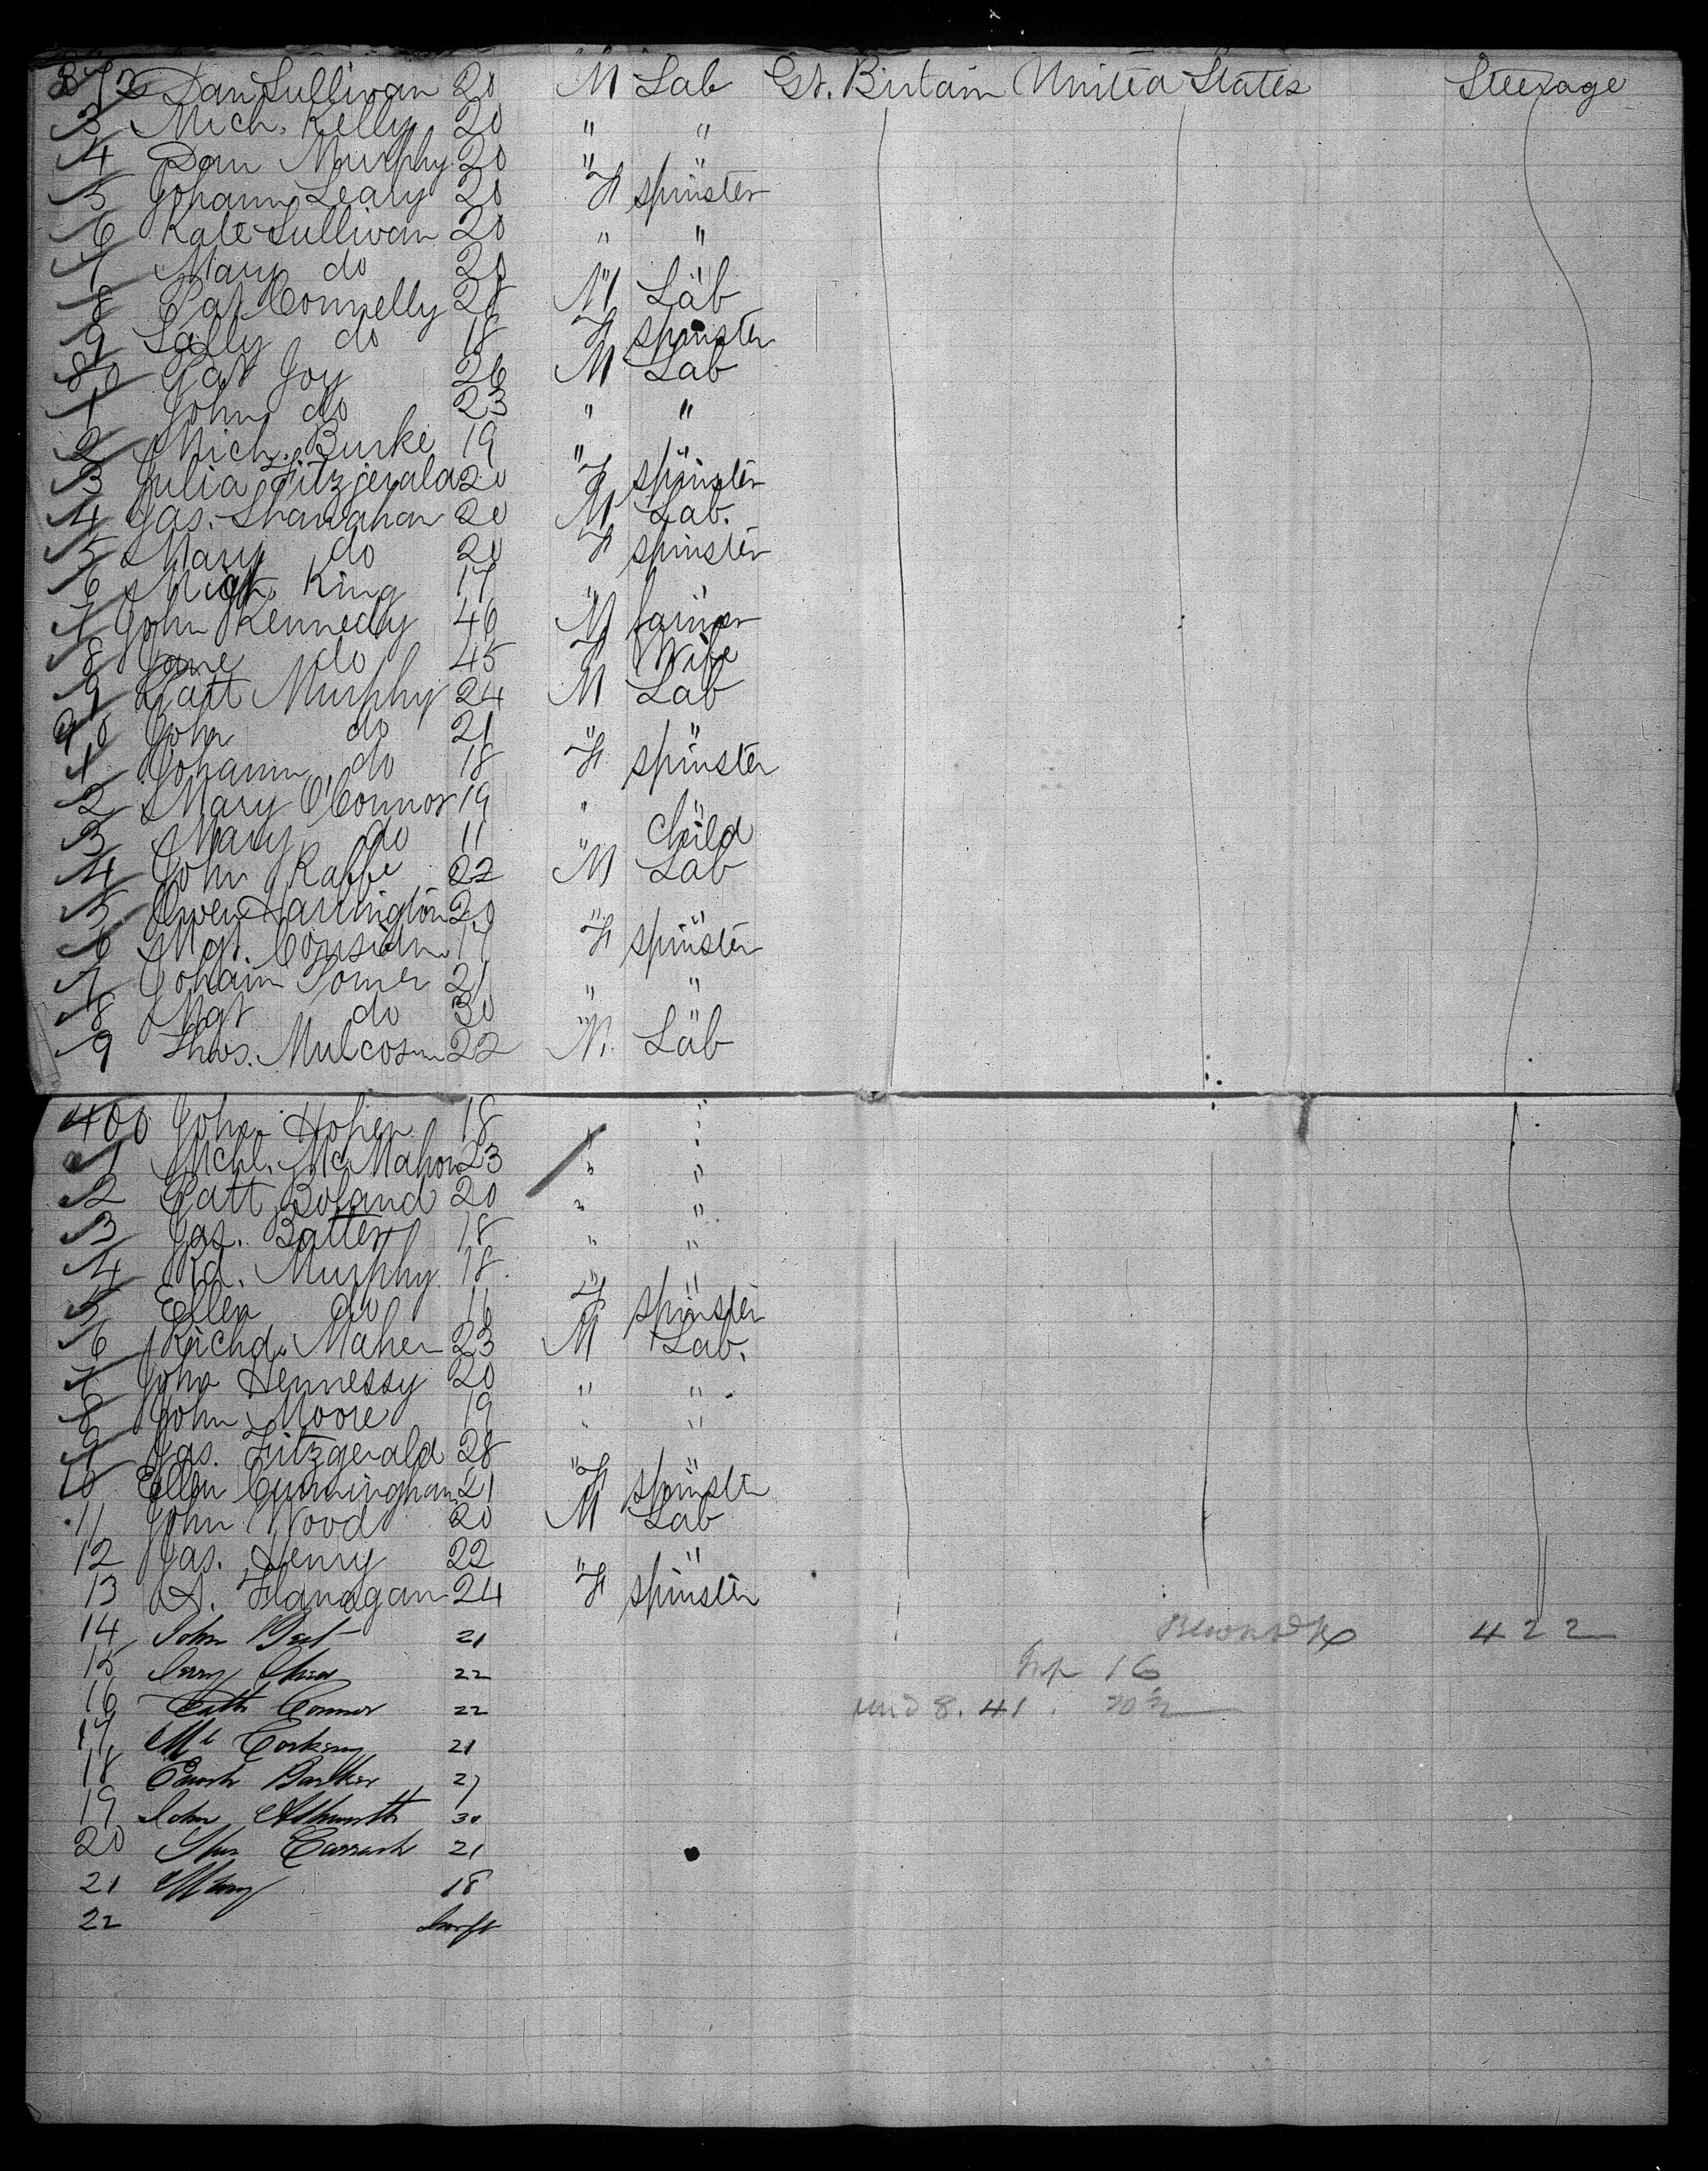 372 Dan Sullivan 20 M Lab Gt. Britain United States Steerage
3 Mich. Kelly 20 " "
4 Dan Murphy 20 " "
5 Johann Leary 20 F spinster
6 Kate Sullivan 20 " "
7 Mary do 20 " "
8 Pat Connelly 28 M Lab
9 Sally do 18 F spinster
80 Pat Joy 26 M Lab
1 John do 23 " "
2 Mich. Burke 19 " "
3 Julia Fitzjerald 20 F spinster
4 Jas. Shanahan 20 M Lab.
5 Mary do 20 F spinster
6 King 17 " "
7 John Kennedy 46 M farmer
8 Jane do 45 F Wife
9 Patt Murphy 24 M Lab
90 John do 21 " "
1 Johann do 18 F spinster
2 Mary O'Connor 19 " "
3 Mary do 11 " Child
4 John Raffe 22 M Lab
5 Owen Harrington 20 " "
6 Mgt. Considn 19 F spinster
7 Johann 21 " "
8 Mgt do 30 " "
9 Thos. 22 M. Lab
400 John 18 " "
1 Michl. McMahon 23 " "
2 Patt Boland 20 " "
3 Jas. Batter 18 " "
4 Rd. Murphy 18. " "
5 Ellen do 16 F spinster
6 Richd. Maher 23 M Lab.
7 John Hennessy 20 " "
8 John Moore 19 " "
9 Jas. Fitzgerald 28 " "
10 Ellen Cunningham 21 F spinster
11 John Wood 20 M Lab
12 Jas. Henry 22 " "
13 A. Flanagan 24 F spinster
14 John 21 422
15 22 16
16 Cath Connor 22 8. 41.
17 Ml 21
18 Barker 27
19 John Ashworth 30
20 21
21 Mary 18
22